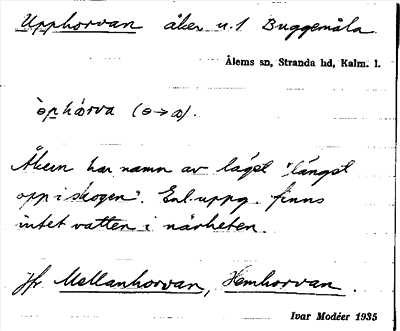 Upphorvan åker u.1 Buggemåla.
Ålems sn, Stranda hd, Kalm. l.
Åkern har namn av läget "längst
opp i skogen". Enl. uppg. finns
intet vatten i närheten.
Jfr Mellanhorvan, Hemhorvan.
Ivar Modéer 1935